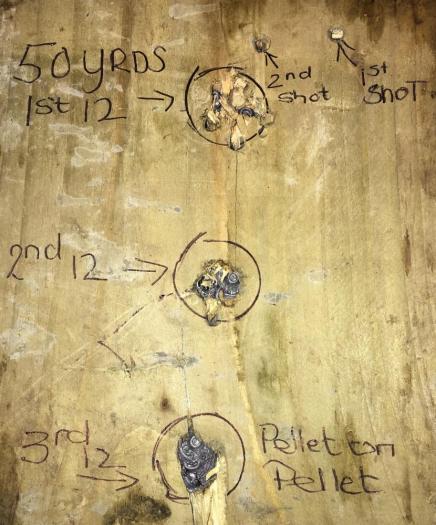 50 YRDS
1st 12
2nd
shot
1st
SHOT.
2nd 12
3rd
12
Pellet on
Pellet